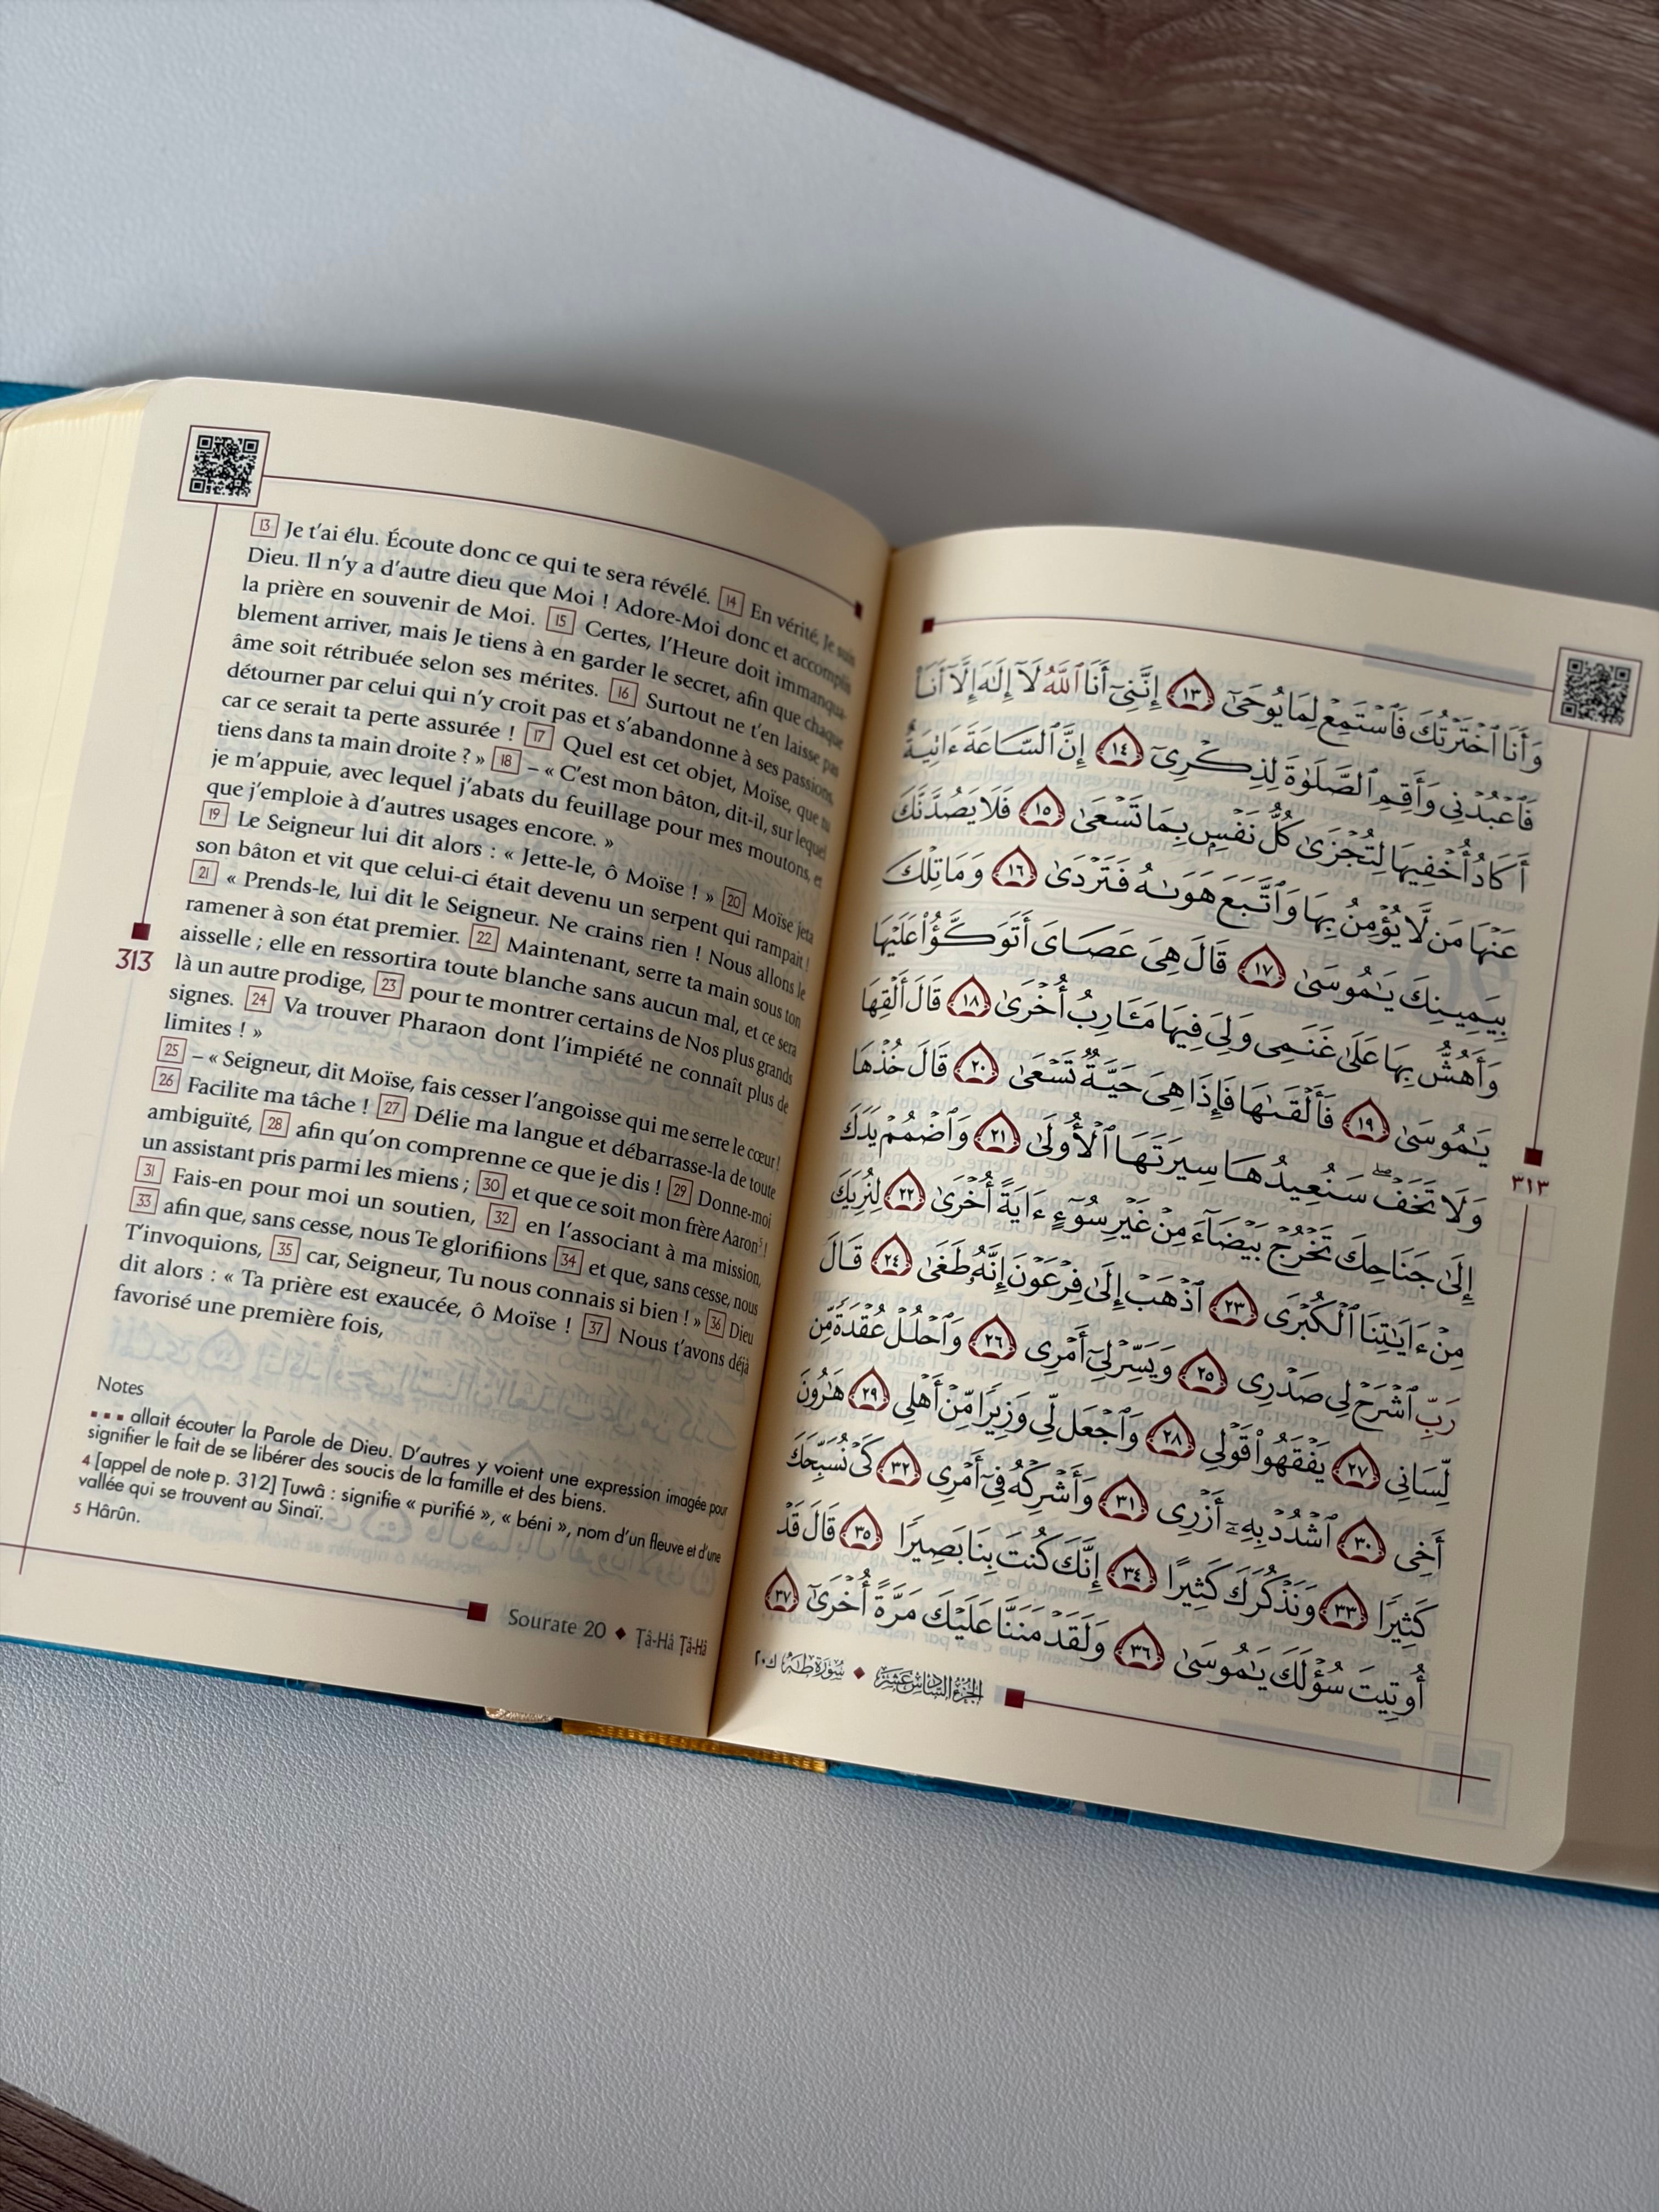 13 Je t'ai élu. Écoute donc ce qui te sera révélé. 14 En vérité, Je suis
Dieu. Il n'y a d'autre dieu que Moi ! Adore-Moi donc et accomplis
la prière en souvenir de Moi. 15 Certes, l'Heure doit immanqua-
blement arriver, mais Je tiens à en garder le secret, afin que chaque
âme soit rétribuée selon ses mérites. 16 Surtout ne t'en laisse pas
détourner par celui qui n'y croit pas et s'abandonne à ses passions,
car ce serait ta perte assurée ! 17 Quel est cet objet, Moïse, que tu
tiens dans ta main droite ? » 18 – « C'est mon bâton, dit-il, sur lequel
je m'appuie, avec lequel j'abats du feuillage pour mes moutons, et
que j'emploie à d'autres usages encore. »
19 Le Seigneur lui dit alors : « Jette-le, ô Moïse ! » 20 Moïse jeta
son bâton et vit que celui-ci était devenu un serpent qui rampait !
21 « Prends-le, lui dit le Seigneur. Ne crains rien ! Nous allons le
ramener à son état premier. 22 Maintenant, serre ta main sous ton
aisselle ; elle en ressortira toute blanche sans aucun mal, et ce sera
là un autre prodige, 23 pour te montrer certains de Nos plus grands
signes. 24 Va trouver Pharaon dont l'impiété ne connaît plus de
limites ! »
25 – « Seigneur, dit Moïse, fais cesser l'angoisse qui me serre le cœur !
26 Facilite ma tâche ! 27 Délie ma langue et débarrasse-la de toute
ambiguïté, 28 afin qu'on comprenne ce que je dis ! 29 Donne-moi
un assistant pris parmi les miens ; 30 et que ce soit mon frère Aaron⁵ !
31 Fais-en pour moi un soutien, 32 en l'associant à ma mission,
33 afin que, sans cesse, nous Te glorifiions 34 et que, sans cesse, nous
T'invoquions, 35 car, Seigneur, Tu nous connais si bien ! » 36 Dieu
dit alors : « Ta prière est exaucée, ô Moïse ! 37 Nous t'avons déjà
favorisé une première fois,
313
Notes
▪▪▪ allait écouter la Parole de Dieu. D'autres y voient une expression imagée pour
signifier le fait de se libérer des soucis de la famille et des biens.
4 [appel de note p. 312] Ṭuwâ : signifie « purifié », « béni », nom d'un fleuve et d'une
vallée qui se trouvent au Sinaï.
5 Hârûn.
Sourate 20 ◆ Ṭâ-Hâ Ṭâ-Hâ
وَأَنَا ٱخْتَرْتُكَ فَٱسْتَمِعْ لِمَا يُوحَىٰٓ ١٣ إِنَّنِىٓ أَنَا ٱللَّهُ لَآ إِلَٰهَ إِلَّآ أَنَا۠
فَٱعْبُدْنِى وَأَقِمِ ٱلصَّلَوٰةَ لِذِكْرِىٓ ١٤ إِنَّ ٱلسَّاعَةَ ءَاتِيَةٌ
أَكَادُ أُخْفِيهَا لِتُجْزَىٰ كُلُّ نَفْسٍۭ بِمَا تَسْعَىٰ ١٥ فَلَا يَصُدَّنَّكَ
عَنْهَا مَن لَّا يُؤْمِنُ بِهَا وَٱتَّبَعَ هَوَىٰهُ فَتَرْدَىٰ ١٦ وَمَا تِلْكَ
بِيَمِينِكَ يَٰمُوسَىٰ ١٧ قَالَ هِىَ عَصَاىَ أَتَوَكَّؤُا۟ عَلَيْهَا
وَأَهُشُّ بِهَا عَلَىٰ غَنَمِى وَلِىَ فِيهَا مَـَٔارِبُ أُخْرَىٰ ١٨ قَالَ أَلْقِهَا
يَٰمُوسَىٰ ١٩ فَأَلْقَىٰهَا فَإِذَا هِىَ حَيَّةٌ تَسْعَىٰ ٢٠ قَالَ خُذْهَا
وَلَا تَخَفْ ۖ سَنُعِيدُهَا سِيرَتَهَا ٱلْأُولَىٰ ٢١ وَٱضْمُمْ يَدَكَ
إِلَىٰ جَنَاحِكَ تَخْرُجْ بَيْضَآءَ مِنْ غَيْرِ سُوٓءٍ ءَايَةً أُخْرَىٰ ٢٢ لِنُرِيَكَ
مِنْ ءَايَٰتِنَا ٱلْكُبْرَى ٢٣ ٱذْهَبْ إِلَىٰ فِرْعَوْنَ إِنَّهُۥ طَغَىٰ ٢٤ قَالَ
رَبِّ ٱشْرَحْ لِى صَدْرِى ٢٥ وَيَسِّرْ لِىٓ أَمْرِى ٢٦ وَٱحْلُلْ عُقْدَةً مِّن
لِّسَانِى ٢٧ يَفْقَهُوا۟ قَوْلِى ٢٨ وَٱجْعَل لِّى وَزِيرًا مِّنْ أَهْلِى ٢٩ هَٰرُونَ
أَخِى ٣٠ ٱشْدُدْ بِهِۦٓ أَزْرِى ٣١ وَأَشْرِكْهُ فِىٓ أَمْرِى ٣٢ كَىْ نُسَبِّحَكَ
كَثِيرًا ٣٣ وَنَذْكُرَكَ كَثِيرًا ٣٤ إِنَّكَ كُنتَ بِنَا بَصِيرًا ٣٥ قَالَ قَدْ
أُوتِيتَ سُؤْلَكَ يَٰمُوسَىٰ ٣٦ وَلَقَدْ مَنَنَّا عَلَيْكَ مَرَّةً أُخْرَىٰٓ ٣٧
٣١٣
الجزء السادس عشر ◆ سورة طه ك٢٠